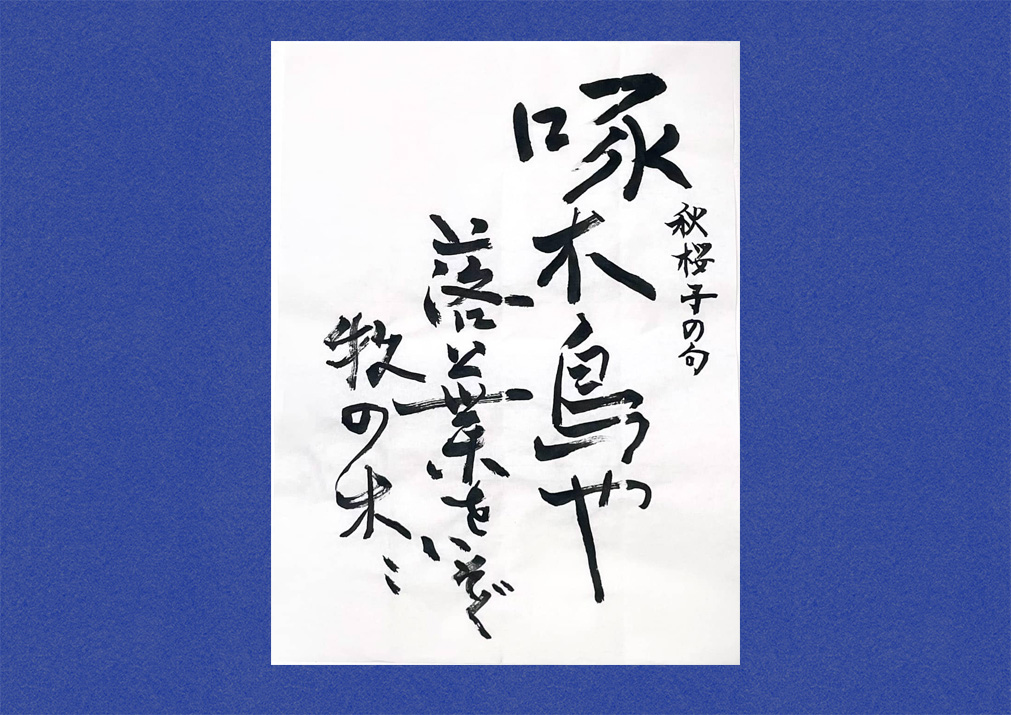 秋桜子の句
啄木鳥や
落葉をいそぐ
牧の木々